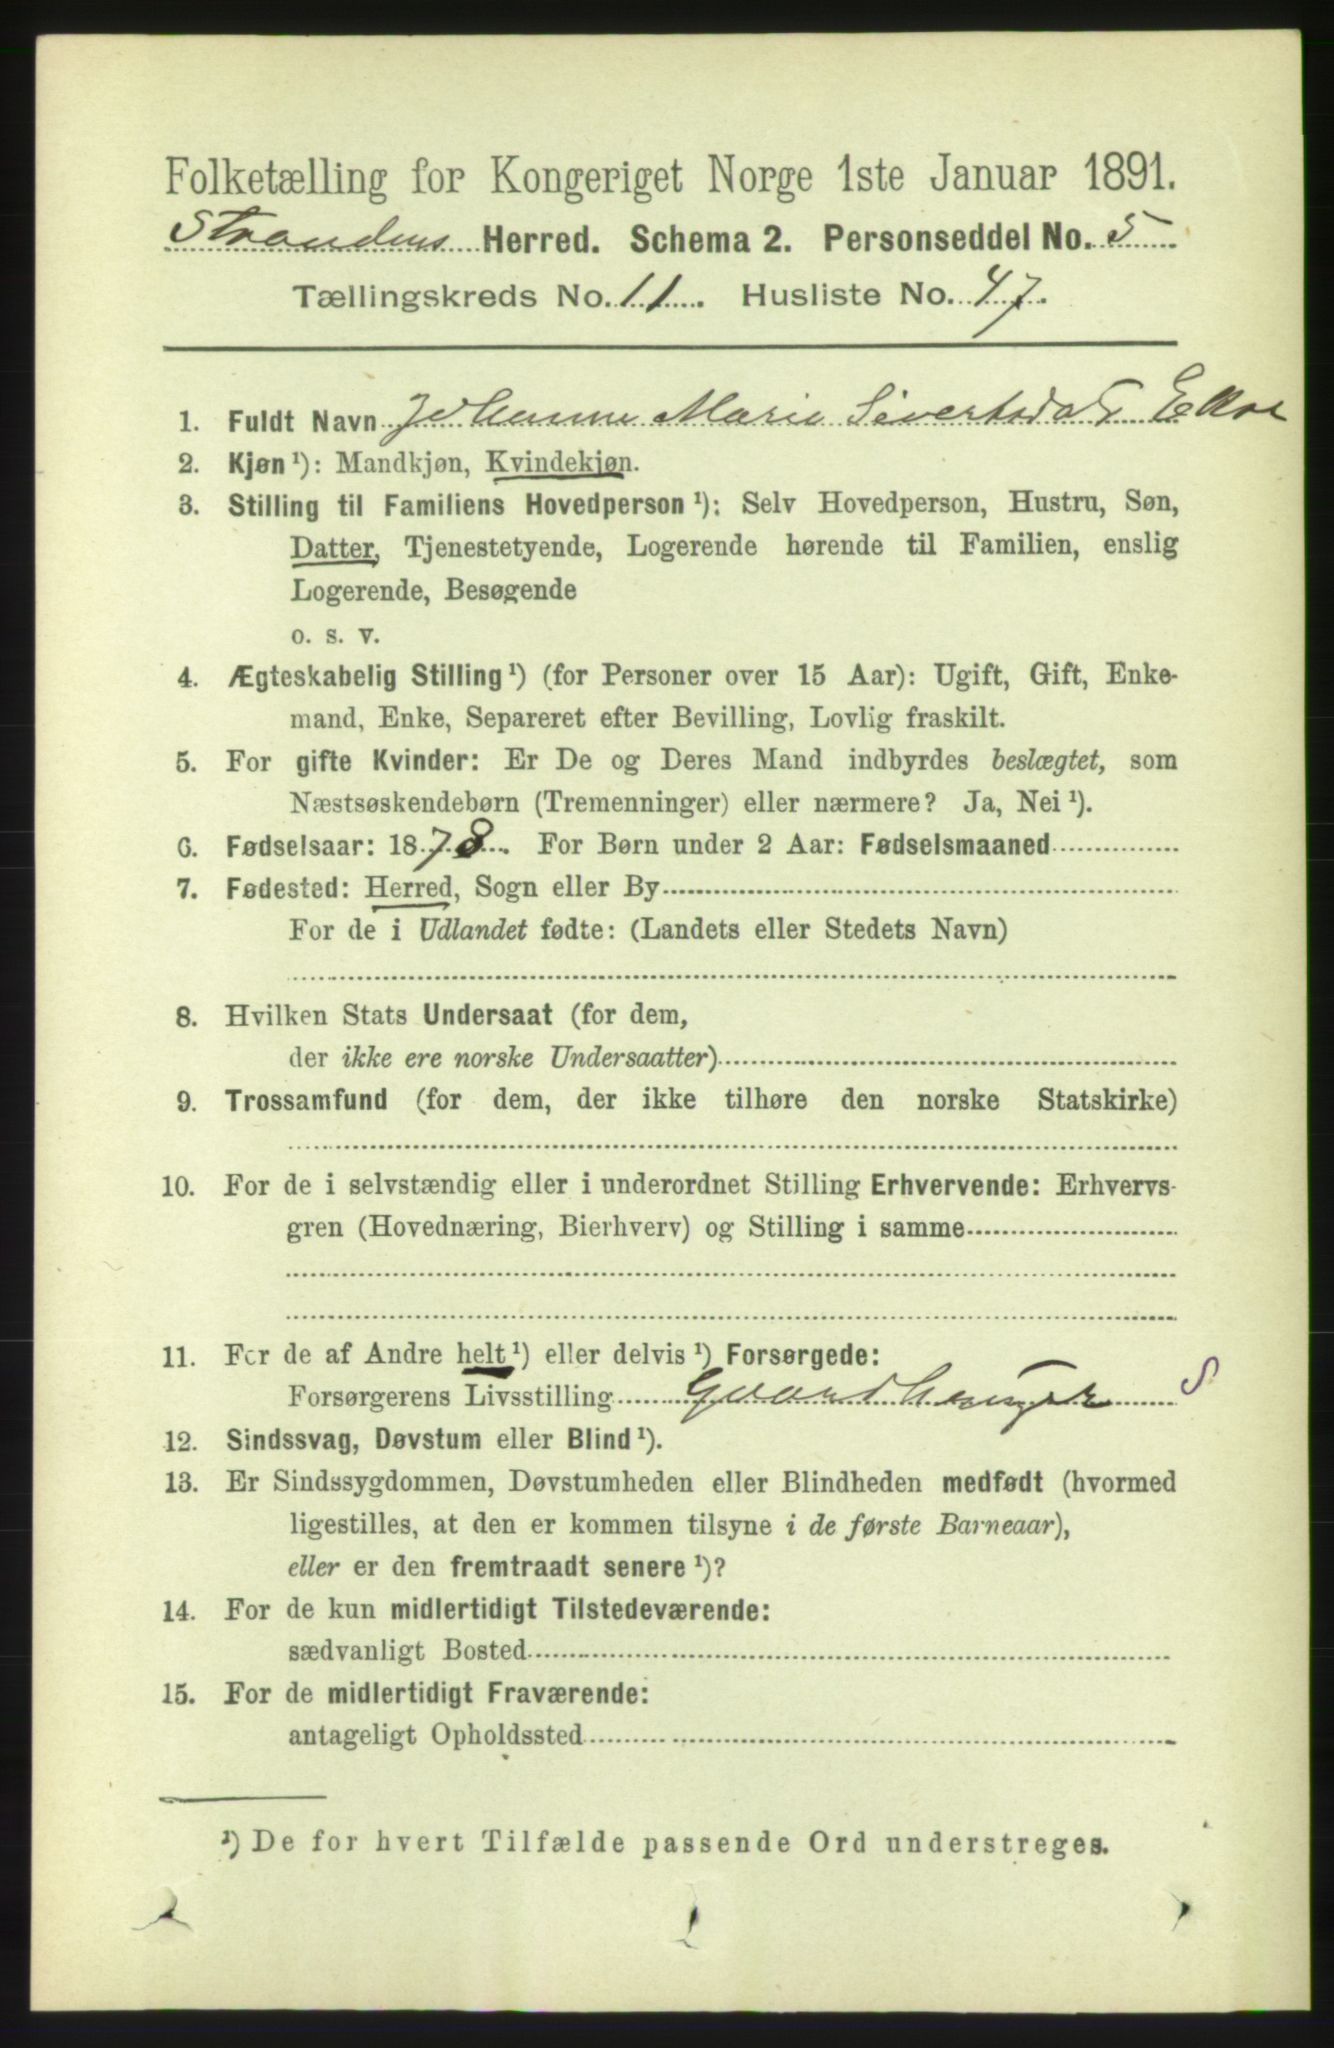 Folketælling for Kongeriget Norge 1ste Januar 1891.
Strandens Herred. Schema 2. Personseddel No. 5
Tællingskreds No. 11. Husliste No. 47.
1. Fuldt Navn Johanne Marie Sivertsdat
2. Kjøn ¹): Mandkjøn, Kvindekjøn.
3. Stilling til Familiens Hovedperson ¹): Selv Hovedperson, Hustru, Søn,
Datter, Tjenestetyende, Logerende hørende til Familien, enslig
Logerende, Besøgende
o. s. v.
4. Ægteskabelig Stilling ¹) (for Personer over 15 Aar): Ugift, Gift, Enke-
mand, Enke, Separeret efter Bevilling, Lovlig fraskilt.
5. For gifte Kvinder: Er De og Deres Mand indbyrdes beslægtet, som
Næstsøskendebørn (Tremenninger) eller nærmere? Ja, Nei ¹).
6. Fødselsaar: 1878. For Børn under 2 Aar: Fødselsmaaned
7. Fødested: Herred, Sogn eller By
For de i Udlandet fødte: (Landets eller Stedets Navn)
8. Hvilken Stats Undersaat (for dem,
der ikke ere norske Undersaatter)
9. Trossamfund (for dem, der ikke tilhøre den norske Statskirke)
10. For de i selvstændig eller i underordnet Stilling Erhvervende: Erhvervs-
gren (Hovednæring, Bierhverv) og Stilling i samme
11. For de af Andre helt ¹) eller delvis ¹) Forsørgede:
Forsørgerens Livsstilling S
12. Sindssvag, Døvstum eller Blind ¹).
13. Er Sindssygdommen, Døvstumheden eller Blindheden medfødt (hvormed
ligestilles, at den er kommen tilsyne i de første Barneaar),
eller er den fremtraadt senere ¹)?
14. For de kun midlertidigt Tilstedeværende:
sædvanligt Bosted
15. For de midlertidigt Fraværende:
antageligt Opholdssted
¹) De for hvert Tilfælde passende Ord understreges.